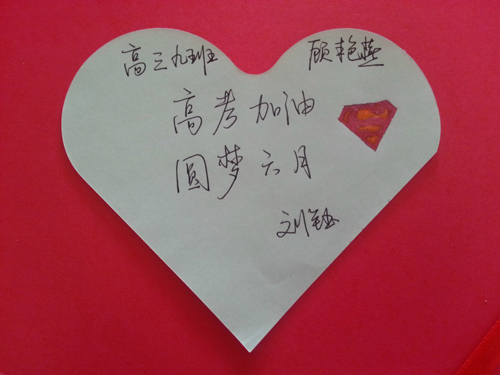 高三九班 顾艳燕
高考加油
圆梦六月